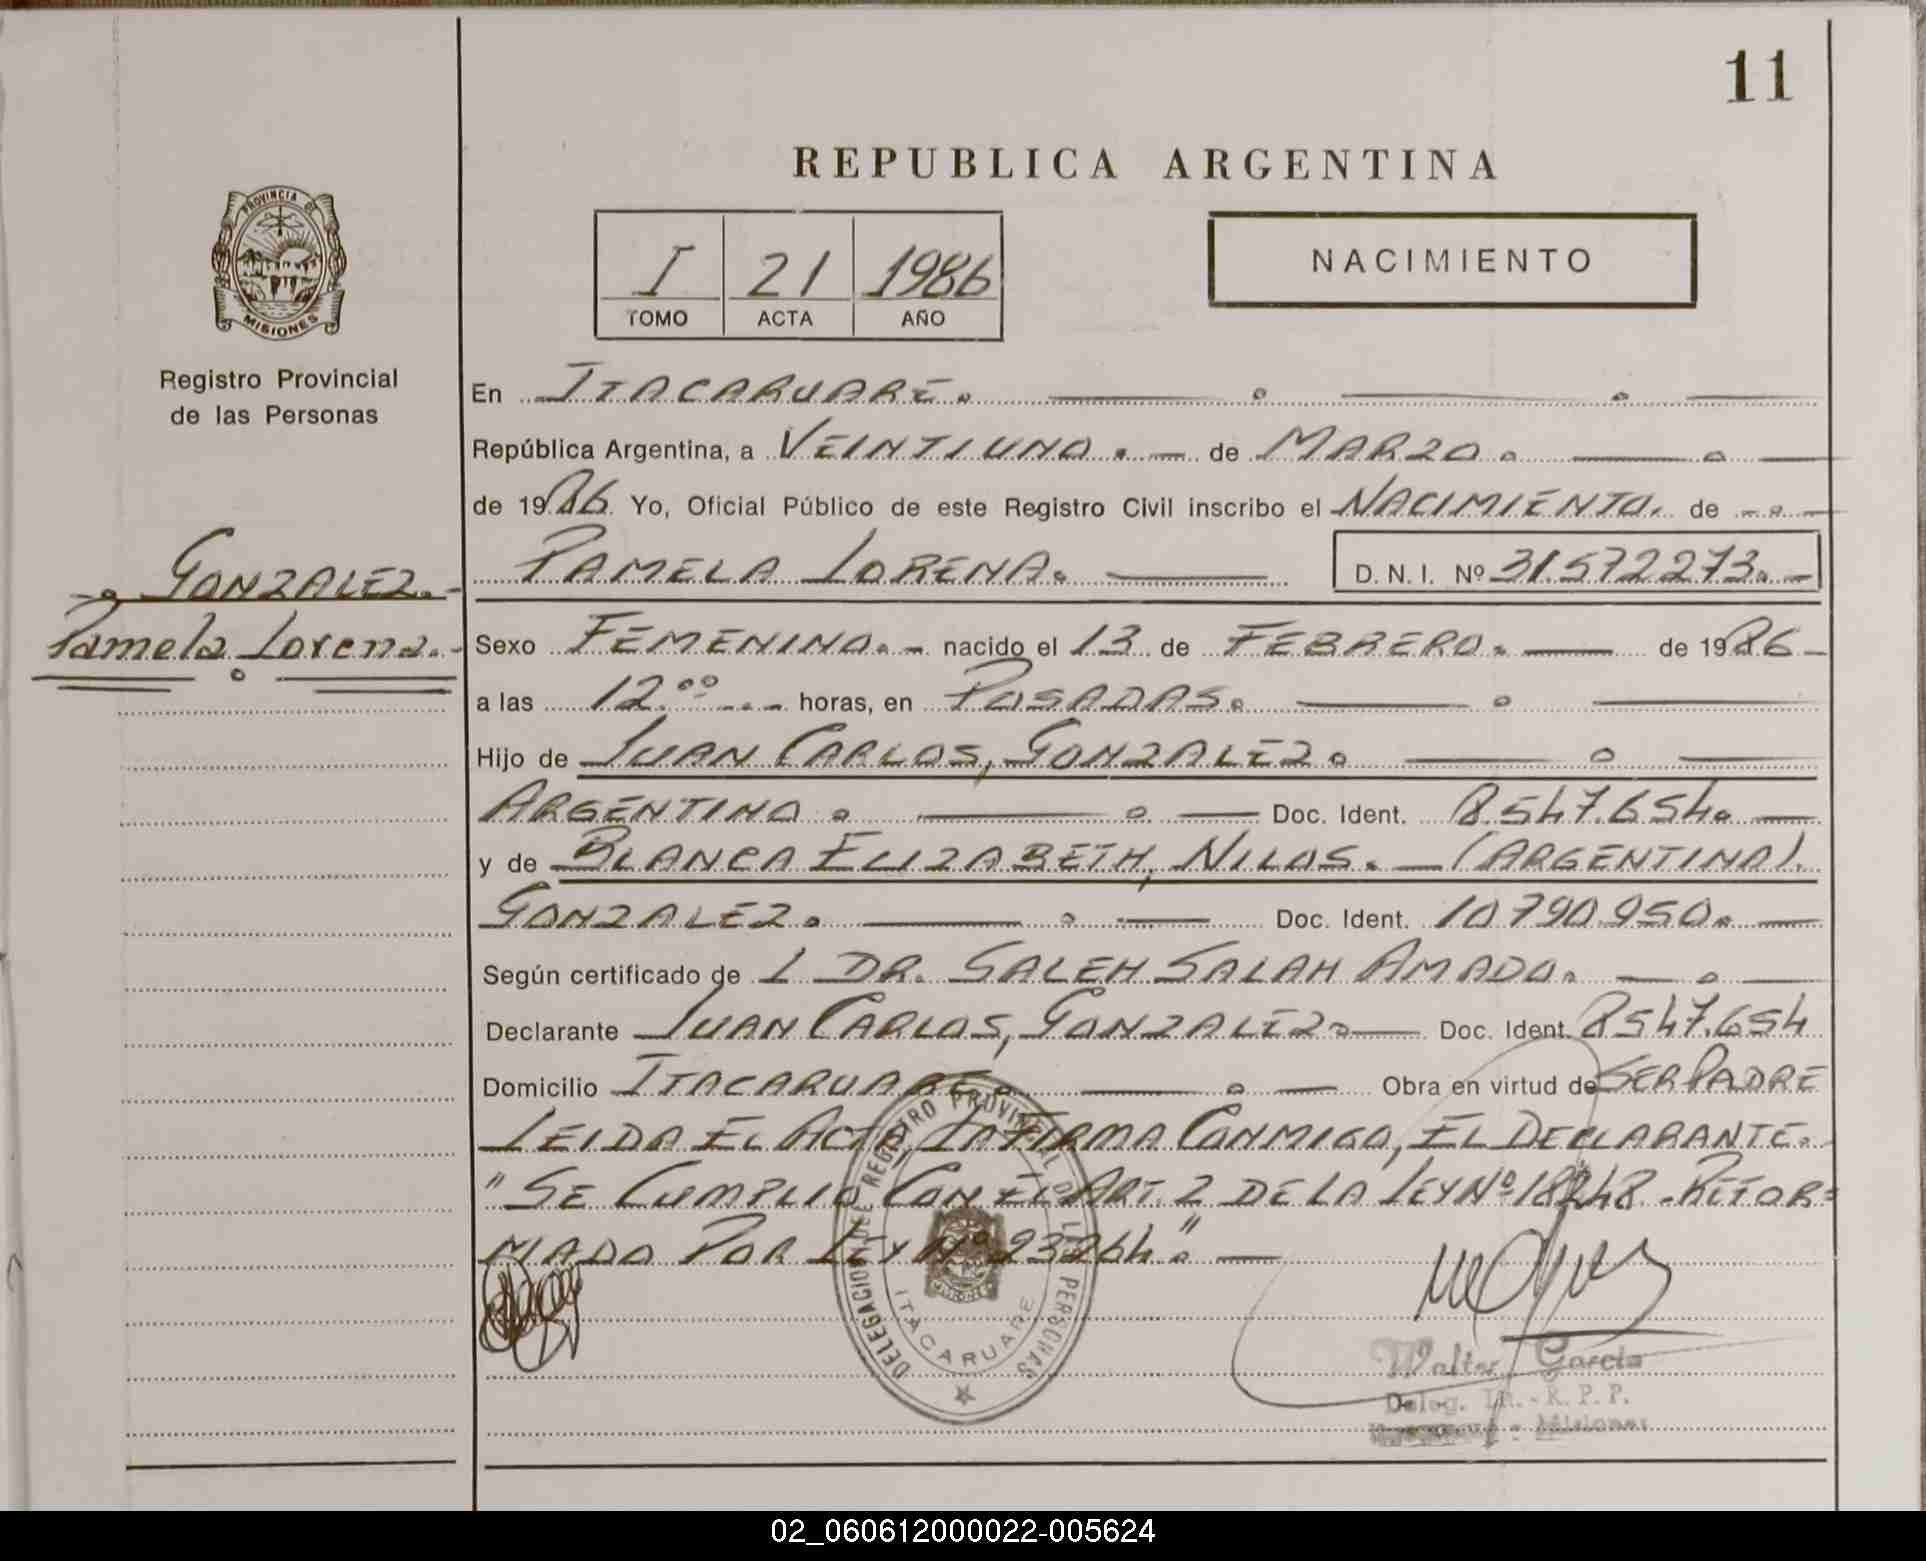 11
REPUBLICA ARGENTINA
PROVINCIA DE
MISIONES
I 21 1986
TOMO ACTA AÑO
NACIMIENTO
Registro Provincial
de las Personas
GONZALEZ.-
Pamela Lorena.-
En ITACARUARE.
República Argentina, a VEINTIUNO.- de MARZO.
de 1986 Yo, Oficial Público de este Registro Civil inscribo el NACIMIENTO. de
PAMELA LORENA. D. N. I. Nº 31.572273.-
Sexo FEMENINO.- nacido el 13 de FEBRERO. de 1986-
a las 12.ºº horas, en POSADAS.
Hijo de JUAN CARLOS, GONZALEZ.
ARGENTINO. Doc. Ident. 8.547.654.
y de BLANCA ELIZABETH, NILOS.- (ARGENTINA).
GONZALEZ. Doc. Ident. 10790.950.
Según certificado de L DR. SALEH SALAH AMADO.
Declarante JUAN CARLOS, GONZALEZ Doc. Ident. 8547.654
Domicilio ITACARUARE. Obra en virtud de SER PADRE
LEIDA EL ACTA, LA FIRMA CONMIGO, EL DECLARANTE.
"SE CUMPLIO CON EL ART. 2 DE LA LEY Nº 18248.-REFOR=
MADO POR LEY Nº 23264."
DELEGACION DEL REGISTRO PROVINCIAL DE LAS PERSONAS
ITACARUARE
Walter García
Deleg. R.P.P.
Misiones
02_060612000022-005624